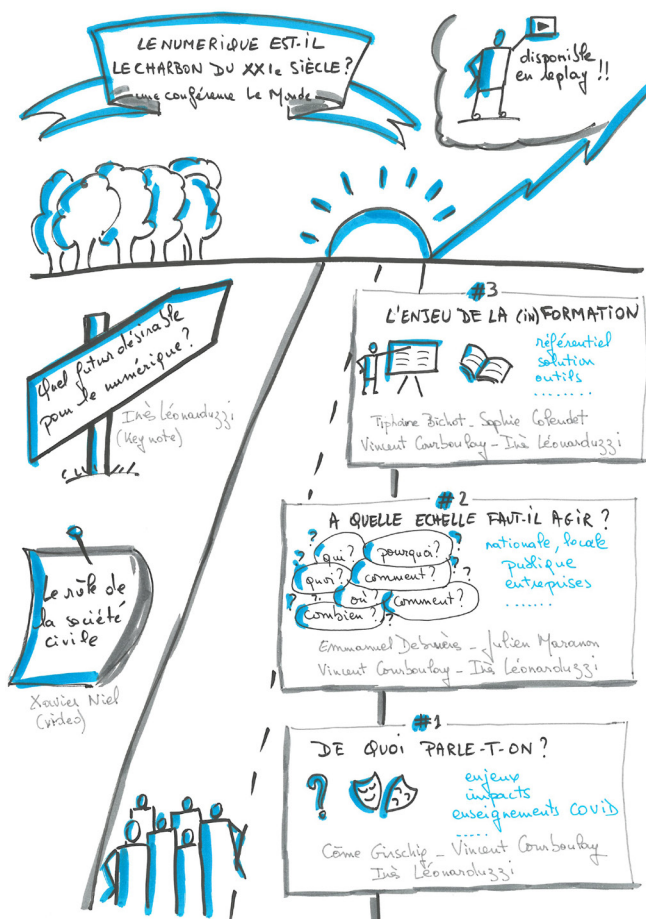 LE NUMERIQUE EST-IL
LE CHARBON DU XXIe SIÈCLE?
une conférence Le Monde
disponible
en replay!!
Quel futur désirable
pour le numérique?
Inès Léonarduzzi
(Keynote)
#3
L'ENJEU DE LA (IN)FORMATION
référentiel
solution
outils
........
Tiphaine Bichot - Sophie Colendet
Vincent Courboulay - Inès Léonarduzzi
#2
A QUELLE ECHELLE FAUT-IL AGIR?
qui?
pourquoi?
quoi?
comment?
où?
comment?
combien?
nationale, locale
publique
entreprises
.......
Emmanuel - Julien Maranon
Vincent Courboulay - Inès Léonarduzzi
Le rôle de
la société
civile
Xavier Niel
(video)
#1
DE QUOI PARLE-T-ON?
?
enjeux
impacts
enseignements COVID
.....
Côme Girschig - Vincent Courboulay
Inès Léonarduzzi